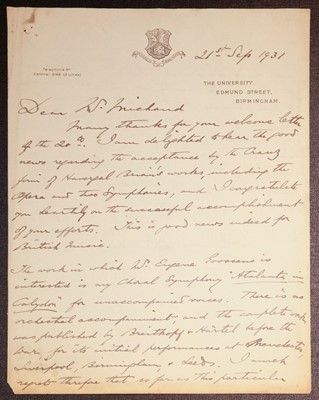 21st Sep 1931
TELEPHONE Nº
CENTRAL
THE UNIVERSITY.
EDMUND STREET,
BIRMINGHAM.
Dear Mr
Many thanks for your welcome letter
of the 20th. I am delighted to hear the good
news regarding the acceptance by the Cranz
firm of Havergal Brian's works, including the
Opera and two Symphonies, and I congratulate
you heartily on the successful accomplishment
of your efforts. This is good news indeed for
British Music.
The work in which Mr Eugene Goossens is
interested is my Choral Symphony "Atalanta in
Calydon" for unaccompanied voices. There is no
orchestral accompaniment, and the complete work
was published by Breitkopf & Härtel before the
War, for its initial performances at Manchester,
Liverpool, Birmingham, & Leeds. I much
regret therefore that so far as this particular